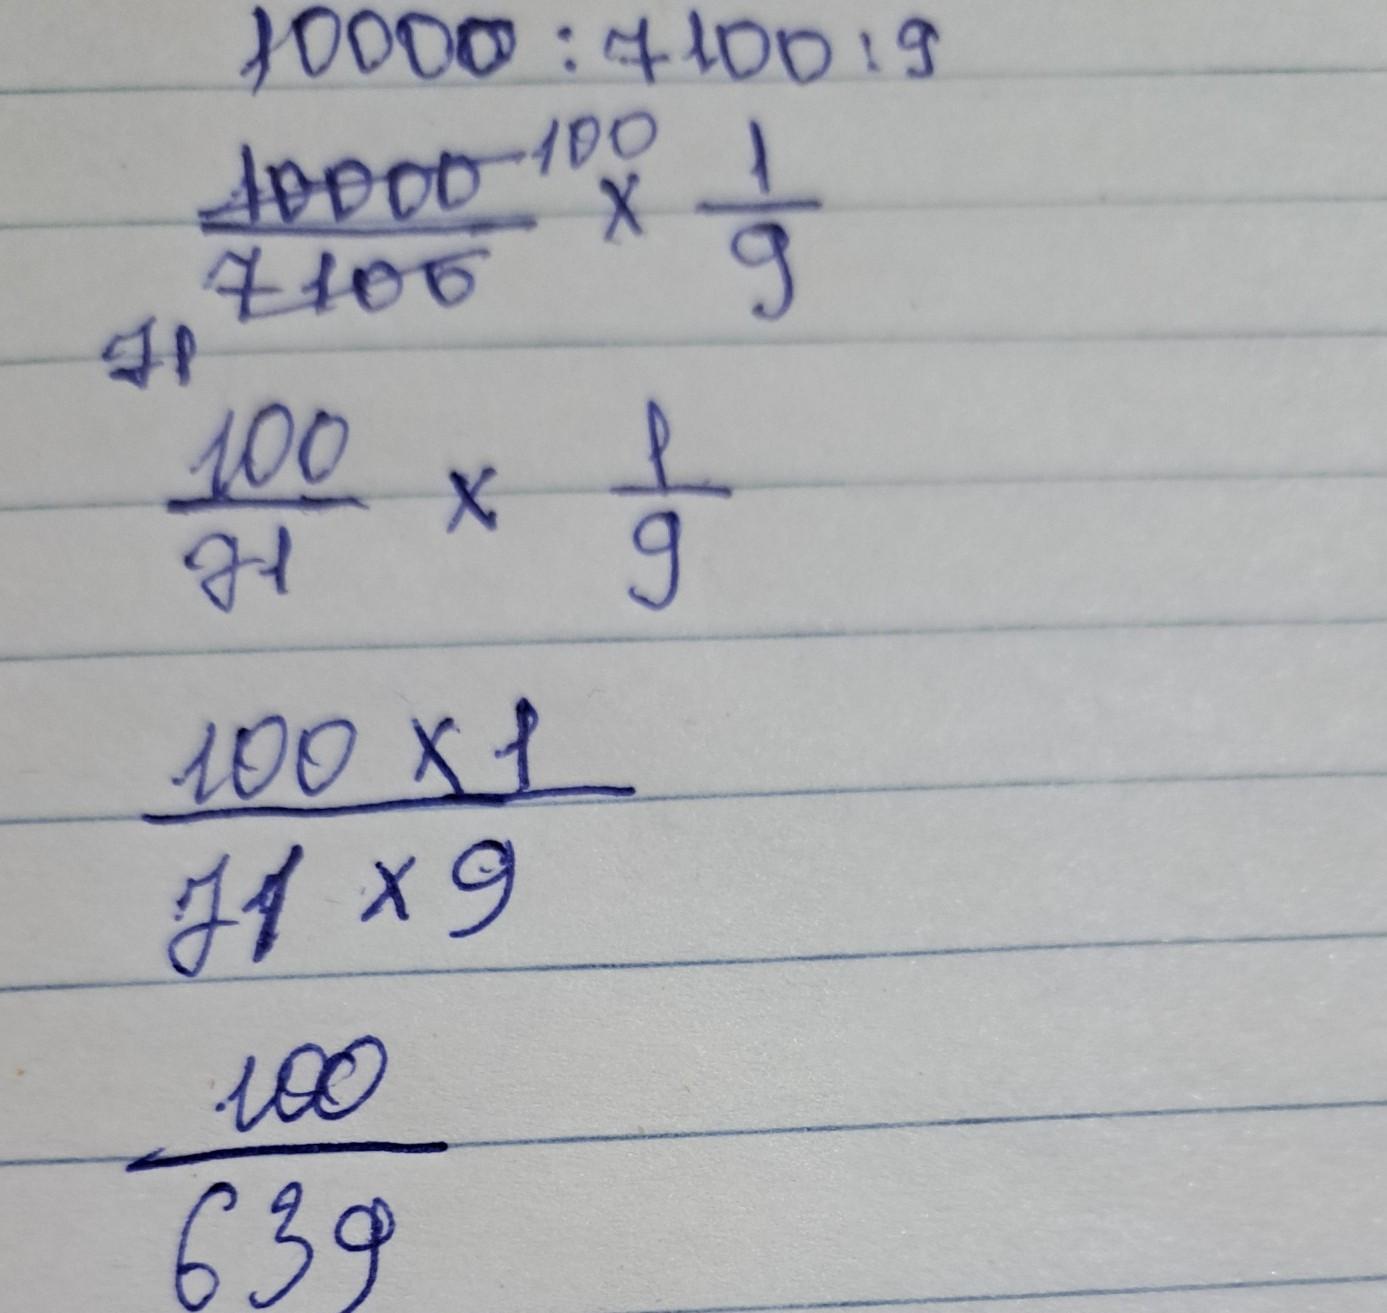 10000 : 7100 : 9
10000 100 × 1
7100 9
71
100 × 1
71 9
100 × 1
71 × 9
100
639